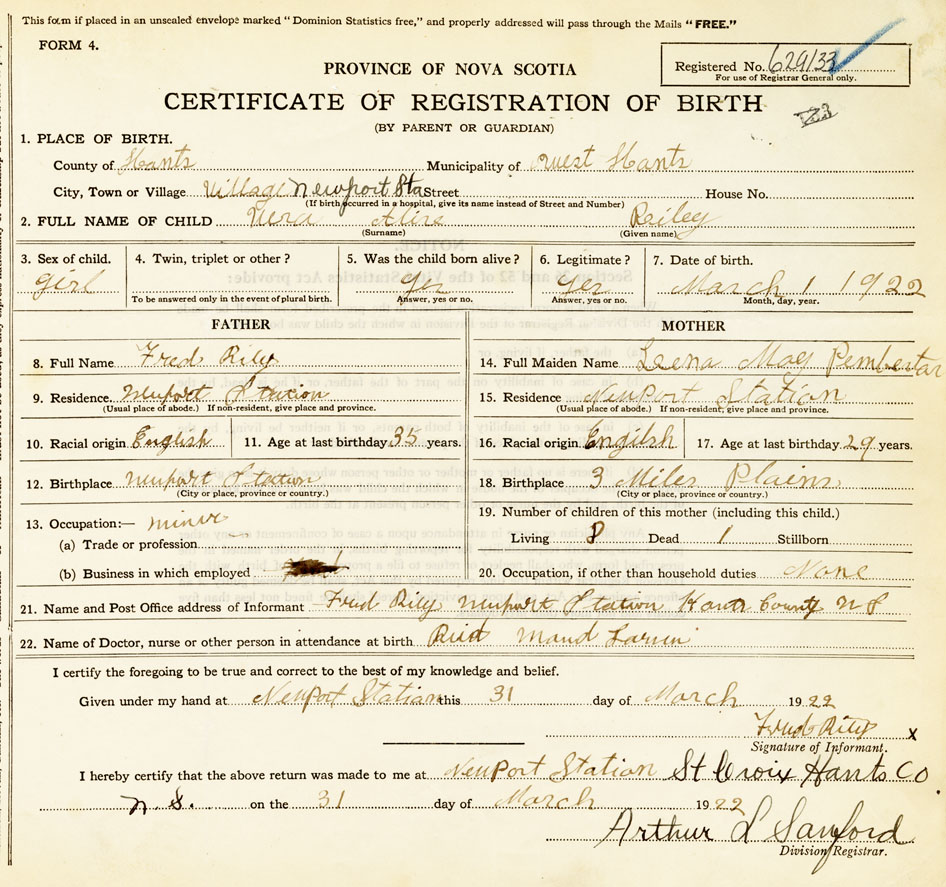 This form if placed in an unsealed envelope marked "Dominion Statistics free," and properly addressed will pass through the Mails "FREE."
FORM 4.
Registered No. 629133
For use of Registrar General only.
PROVINCE OF NOVA SCOTIA
CERTIFICATE OF REGISTRATION OF BIRTH
(BY PARENT OR GUARDIAN)
1. PLACE OF BIRTH.
County of Hants Municipality of West Hants
City, Town or Village Village Newport Sta Street House No.
(If birth occurred in a hospital, give its name instead of Street and Number)
2. FULL NAME OF CHILD Vera Alire Reiley
(Surname) (Given name)
3. Sex of child. 4. Twin, triplet or other? 5. Was the child born alive? 6. Legitimate? 7. Date of birth.
girl Yes Yes March 1 1922
To be answered only in the event of plural birth. Answer, yes or no. Answer, yes or no. Month, day, year.
FATHER MOTHER
8. Full Name Fred Rily 14. Full Maiden Name Leena May Pembertar
9. Residence. Newport Station 15. Residence Newport Station
(Usual place of abode.) If non-resident, give place and province. (Usual place of abode.) If non-resident, give place and province.
10. Racial origin English 11. Age at last birthday 35 years. 16. Racial origin English 17. Age at last birthday 29 years.
12. Birthplace Newport Station 18. Birthplace 3 Miles Plains
(City or place, province or country.) (City or place, province or country.)
13. Occupation:— miner 19. Number of children of this mother (including this child.)
(a) Trade or profession Living 8 Dead 1 Stillborn
(b) Business in which employed 20. Occupation, if other than household duties None
21. Name and Post Office address of Informant Fred Rily Newport Station Hants County N S
22. Name of Doctor, nurse or other person in attendance at birth Maud
I certify the foregoing to be true and correct to the best of my knowledge and belief.
Given under my hand at Newport Station this 31 day of March 1922
Fred Rily x
Signature of Informant.
I hereby certify that the above return was made to me at Newport Station St Croix Hants Co
N. S. on the 31 day of March 1922
Arthur L Sanford
Division Registrar.